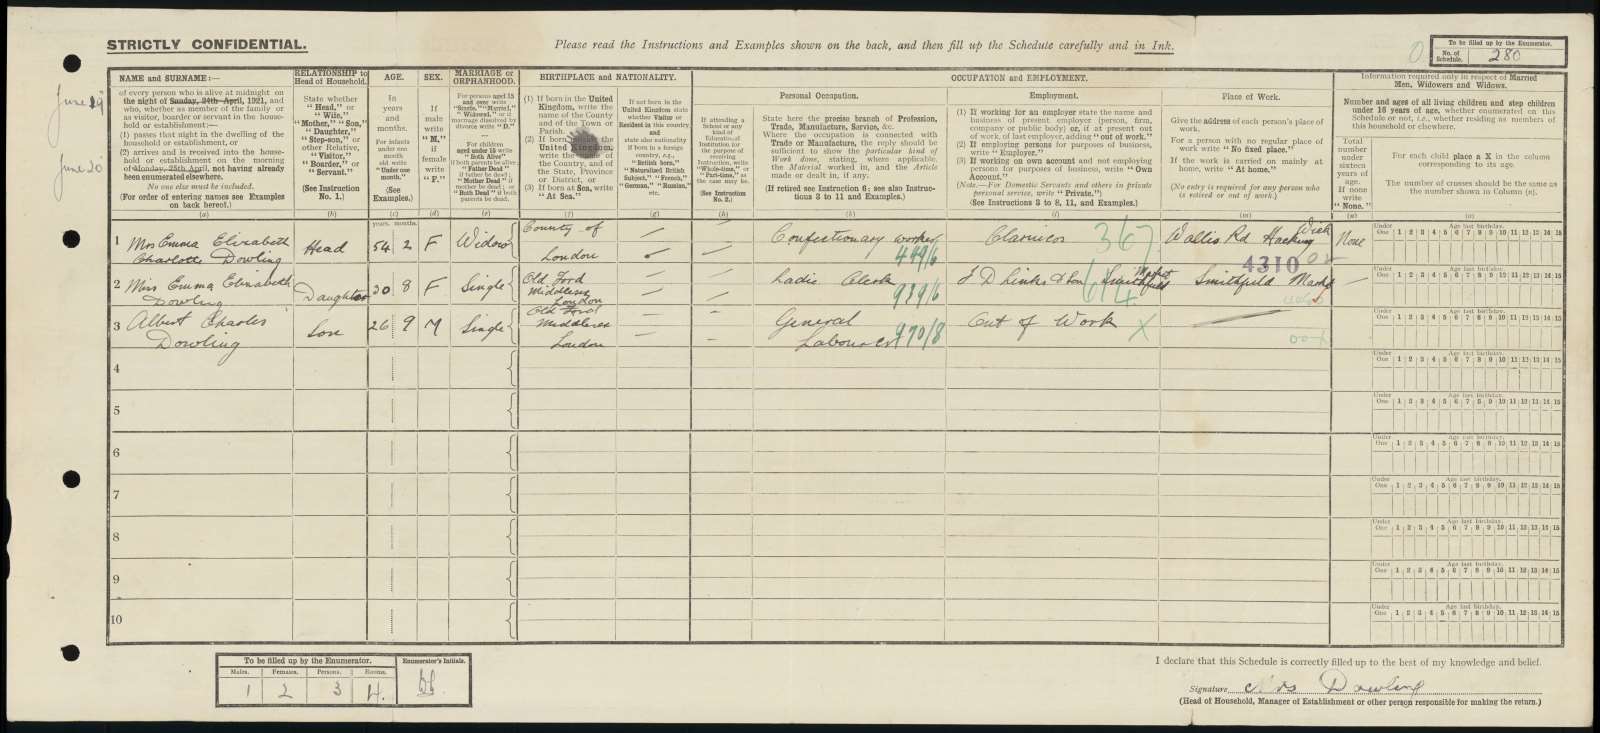 STRICTLY CONFIDENTIAL.
Please read the Instructions and Examples shown on the back, and then fill up the Schedule carefully and in Ink.
0
To be filled up by the Enumerator.
No. of Schedule. 280
June 19
June 20
NAME and SURNAME:—
of every person who is alive at midnight on
the night of Sunday, 24th April, 1921, and
who, whether as member of the family or
as visitor, boarder or servant in the house-
hold or establishment:—
(1) passes that night in the dwelling of the
household or establishment, or
(2) arrives and is received into the house-
hold or establishment on the morning
of Monday, 25th April, not having already
been enumerated elsewhere.
No one else must be included.
(For order of entering names see Examples
on back hereof.)
(a)
RELATIONSHIP to
Head of Household.
State whether
"Head," or
"Wife,"
"Mother," "Son,"
"Daughter,"
"Step-son," or
other Relative,
"Visitor,"
"Boarder," or
"Servant."
(See Instruction
No. 1.)
(b)
AGE.
In
years
and
months.
For infants
under one
month
old write
"Under one
month."
(See
Examples.)
(c)
years. months.
SEX.
If
male
write
"M,"
if
female
write
"F."
(d)
MARRIAGE or
ORPHANHOOD.
For persons aged 15
and over write
"Single," "Married,"
"Widowed," or if
marriage dissolved by
divorce write "D."
For children
aged under 15 write
"Both Alive"
if both parents be alive;
"Father Dead"
if father be dead;
"Mother Dead" if
mother be dead; or
"Both Dead" if both
parents be dead.
(e)
BIRTHPLACE and NATIONALITY.
(1) If born in the United
Kingdom, write the
name of the County
and of the Town or
Parish.
(2) If born the
United Kingdom,
write the of
the Country, and of
the State, Province
or District, or
(3) If born at Sea, write
"At Sea."
(f)
If not born in the
United Kingdom state
whether Visitor or
Resident in this country,
and
state also nationality
if born in a foreign
country, e.g.,
"British born,"
"Naturalised British
Subject," "French,"
"German," "Russian,"
etc.
(g)
OCCUPATION and EMPLOYMENT.
If attending a
School or any
kind of
Educational
Institution for
the purpose of
receiving
Instruction, write
"Whole-time," or
"Part-time," as
the case may be.
(See Instruction
No. 2.)
(h)
Personal Occupation.
State here the precise branch of Profession,
Trade, Manufacture, Service, &c.
Where the occupation is connected with
Trade or Manufacture, the reply should be
sufficient to show the particular kind of
Work done, stating, where applicable,
the Material worked in, and the Article
made or dealt in, if any.
(If retired see Instruction 6; see also Instruc-
tions 3 to 11 and Examples.)
(k)
Employment.
(1) If working for an employer state the name and
business of present employer (person, firm,
company or public body) or, if at present out
of work, of last employer, adding "out of work."
(2) If employing persons for purposes of business,
write "Employer."
(3) If working on own account and not employing
persons for purposes of business, write "Own
Account."
(Note.—For Domestic Servants and others in private
personal service, write "Private.")
(See Instructions 3 to 8, 11, and Examples.)
(l)
Place of Work.
Give the address of each person's place of
work.
For a person with no regular place of
work write "No fixed place."
If the work is carried on mainly at
home, write "At home."
(No entry is required for any person who
is retired or out of work.)
(m)
Information required only in respect of Married
Men, Widowers and Widows.
Number and ages of all living children and step children
under 16 years of age, whether enumerated on this
Schedule or not, i.e., whether residing as members of
this household or elsewhere.
Total
number
under
sixteen
years of
age.
If none
write
"None."
(n)
For each child place a X in the column
corresponding to its age.
The number of crosses should be the same as
the number shown in Column (n).
(o)
1 Mrs Emma Elizabeth Charlotte Dowling Head 54 2 F Widow County of London Confectionary worker 449/6 Clarnico 367 Wallis Rd Hackney Wick None
4310
2 Miss Emma Elizabeth Dowling Daughter 30 8 F Single Old Ford Middlesex London Ladie Clerk 939/6 614 Smithfield Market
3 Albert Charles Dowling Son 26 9 M Single Old Ford Middlesex London General Labourer 970/8 Out of Work X
4
5
6
7
8
9
10
Under One 1 2 3 4 5 6 7 8 9 10 11 12 13 14 15
Age last birthday.
To be filled up by the Enumerator.
Males. Females. Persons. Rooms.
1 2 3 4
Enumerator's Initials.
I declare that this Schedule is correctly filled up to the best of my knowledge and belief.
Signature Mrs Dowling
(Head of Household, Manager of Establishment or other person responsible for making the return.)